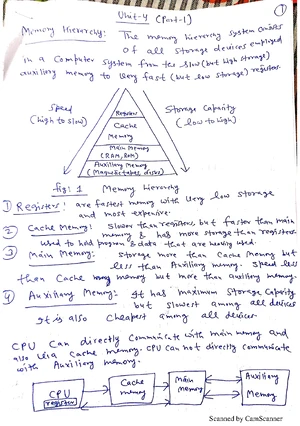 Unit-4 (Part-1)
①
Memory Hierarchy: The memory hierarchy system consists
of all storage devices employed
in a Computer system from the slow (but high storage)
auxiliary memory to very fast (but low storage) registers.
Speed
(high to slow)
Storage Capacity
(low to high)
Register
Cache
Memory
Main Memory
(RAM, ROM)
Auxiliary Memory
(Magnetic tapes, disks)
fig: 1 Memory Hierarchy
① Registers: are fastest memory with very low storage
and most expensive.
② Cache Memory: Slower than registers, but faster than main
memory & has more storage than registers.
Used to hold program & data that are being used.
③ Main Memory: Storage more than Cache memory but
less than Auxiliary memory. Speed less
than Cache memory but more than auxiliary memory.
④ Auxiliary Memory: It has maximum Storage Capacity
but slowest among all devices
It is also Cheapest among all devices.
CPU Can directly Communicate with main memory and
also via Cache memory. CPU can not directly communicate
with Auxiliary memory.
CPU
register
Cache
memory
Main
Memory
Auxiliary
Memory
Scanned by CamScanner